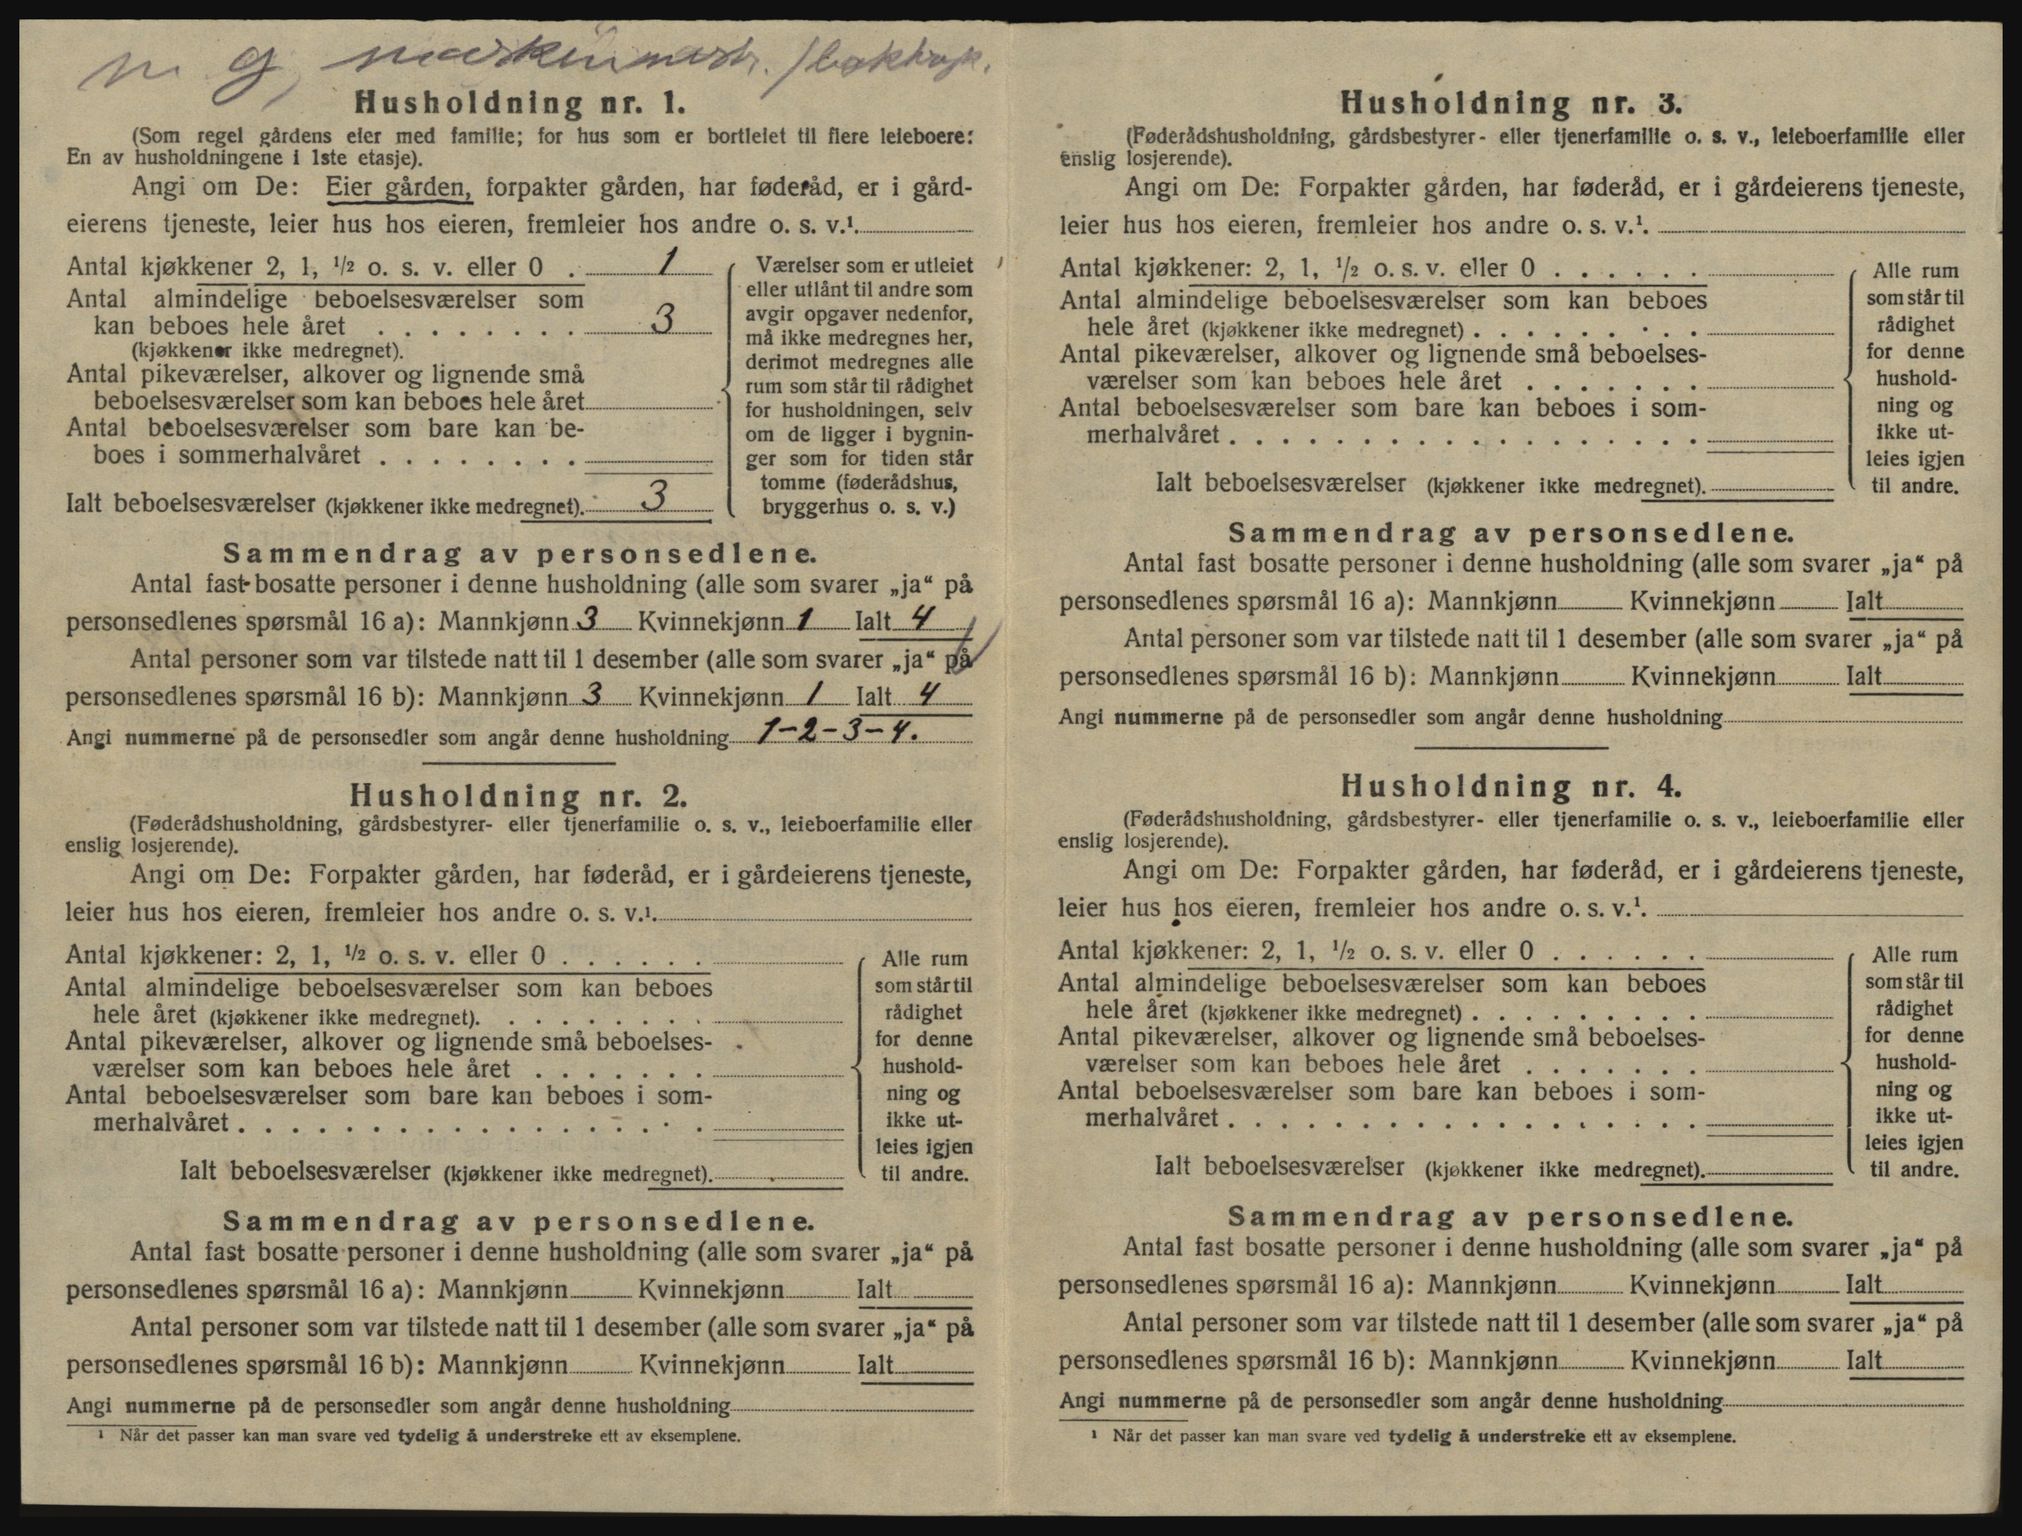 m. g, maskinmest. / boktryk.
Husholdning nr. 1.
(Som regel gårdens eier med familie; for hus som er bortleiet til flere leieboere:
En av husholdningene i 1ste etasje).
Angi om De: Eier gården, forpakter gården, har føderåd, er i gård-
eierens tjeneste, leier hus hos eieren, fremleier hos andre o. s. v.¹.
Antal kjøkkener 2, 1, ½ o. s. v. eller 0 . 1
Antal almindelige beboelsesværelser som
kan beboes hele året . . . . . . . . 3
(kjøkkener ikke medregnet).
Antal pikeværelser, alkover og lignende små
beboelsesværelser som kan beboes hele året
Antal beboelsesværelser som bare kan be-
boes i sommerhalvåret . . . . . . . .
Ialt beboelsesværelser (kjøkkener ikke medregnet). 3
Værelser som er utleiet
eller utlånt til andre som
avgir opgaver nedenfor,
må ikke medregnes her,
derimot medregnes alle
rum som står til rådighet
for husholdningen, selv
om de ligger i bygnin-
ger som for tiden står
tomme (føderådshus,
bryggerhus o. s. v.)
Sammendrag av personsedlene.
Antal fast bosatte personer i denne husholdning (alle som svarer „ja“ på
personsedlenes spørsmål 16 a): Mannkjønn 3 Kvinnekjønn 1 Ialt 4
Antal personer som var tilstede natt til 1 desember (alle som svarer „ja“ på
personsedlenes spørsmål 16 b): Mannkjønn 3 Kvinnekjønn 1 Ialt 4
Angi nummerne på de personsedler som angår denne husholdning 1-2-3-4.
Husholdning nr. 2.
(Føderådshusholdning, gårdsbestyrer- eller tjenerfamilie o. s. v., leieboerfamilie eller
enslig losjerende).
Angi om De: Forpakter gården, har føderåd, er i gårdeierens tjeneste,
leier hus hos eieren, fremleier hos andre o. s. v.¹.
Antal kjøkkener: 2, 1, ½ o. s. v. eller 0 . . . . . .
Antal almindelige beboelsesværelser som kan beboes
hele året (kjøkkener ikke medregnet). . . . . . . . .
Antal pikeværelser, alkover og lignende små beboelses-
værelser som kan beboes hele året . . . . . . .
Antal beboelsesværelser som bare kan beboes i som-
merhalvåret . . . . . . . . . . . . . . . . . .
Ialt beboelsesværelser (kjøkkener ikke medregnet).
Alle rum
som står til
rådighet
for denne
hushold-
ning og
ikke ut-
leies igjen
til andre.
Sammendrag av personsedlene.
Antal fast bosatte personer i denne husholdning (alle som svarer „ja“ på
personsedlenes spørsmål 16 a): Mannkjønn Kvinnekjønn Ialt
Antal personer som var tilstede natt til 1 desember (alle som svarer „ja“ på
personsedlenes spørsmål 16 b): Mannkjønn Kvinnekjønn Ialt
Angi nummerne på de personsedler som angår denne husholdning
¹ Når det passer kan man svare ved tydelig å understreke ett av eksemplene.
Husholdning nr. 3.
(Føderådshusholdning, gårdsbestyrer- eller tjenerfamilie o. s. v., leieboerfamilie eller
enslig losjerende).
Angi om De: Forpakter gården, har føderåd, er i gårdeierens tjeneste,
leier hus hos eieren, fremleier hos andre o. s. v.¹.
Antal kjøkkener: 2, 1, ½ o. s. v. eller 0 . . . . . .
Antal almindelige beboelsesværelser som kan beboes
hele året (kjøkkener ikke medregnet) . . . . . . . . .
Antal pikeværelser, alkover og lignende små beboelses-
værelser som kan beboes hele året . . . . . . .
Antal beboelsesværelser som bare kan beboes i som-
merhalvåret . . . . . . . . . . . . . . . . . .
Ialt beboelsesværelser (kjøkkener ikke medregnet).
Alle rum
som står til
rådighet
for denne
hushold-
ning og
ikke ut-
leies igjen
til andre.
Sammendrag av personsedlene.
Antal fast bosatte personer i denne husholdning (alle som svarer „ja“ på
personsedlenes spørsmål 16 a): Mannkjønn Kvinnekjønn Ialt
Antal personer som var tilstede natt til 1 desember (alle som svarer „ja“ på
personsedlenes spørsmål 16 b): Mannkjønn Kvinnekjønn Ialt
Angi nummerne på de personsedler som angår denne husholdning
Husholdning nr. 4.
(Føderådshusholdning, gårdsbestyrer- eller tjenerfamilie o. s. v., leieboerfamilie eller
enslig losjerende).
Angi om De: Forpakter gården, har føderåd, er i gårdeierens tjeneste,
leier hus hos eieren, fremleier hos andre o. s. v.¹.
Antal kjøkkener: 2, 1, ½ o. s. v. eller 0 . . . . . .
Antal almindelige beboelsesværelser som kan beboes
hele året (kjøkkener ikke medregnet) . . . . . . . . .
Antal pikeværelser, alkover og lignende små beboelses-
værelser som kan beboes hele året . . . . . . .
Antal beboelsesværelser som bare kan beboes i som-
merhalvåret . . . . . . . . . . . . . . . . . .
Ialt beboelsesværelser (kjøkkener ikke medregnet).
Alle rum
som står til
rådighet
for denne
hushold-
ning og
ikke ut-
leies igjen
til andre.
Sammendrag av personsedlene.
Antal fast bosatte personer i denne husholdning (alle som svarer „ja“ på
personsedlenes spørsmål 16 a): Mannkjønn Kvinnekjønn Ialt
Antal personer som var tilstede natt til 1 desember (alle som svarer „ja“ på
personsedlenes spørsmål 16 b): Mannkjønn Kvinnekjønn Ialt
Angi nummerne på de personsedler som angår denne husholdning
¹ Når det passer kan man svare ved tydelig å understreke ett av eksemplene.